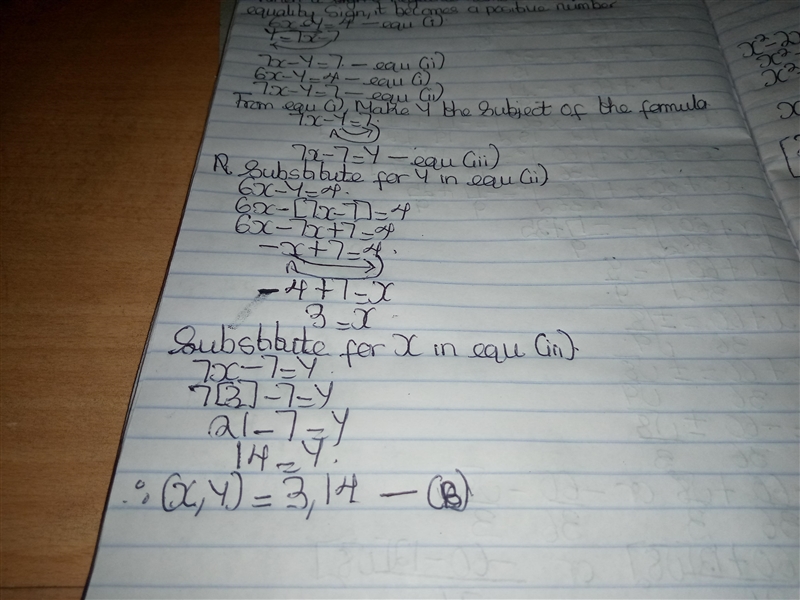 equality sign, it becomes a positive number
6x-y=4 - equ (i)
y=7x-7
7x-y=7 - equ (ii)
6x-y=4 - equ (i)
7x-y=7 - equ (ii)
From equ (i), Make y the subject of the formula
7x-y=7
7x-7=y - equ (iii)
Substitute for y in equ (ii)
6x-y=4.
6x-[7x-7]=4
6x-7x+7=4
-x+7=4.
-4+7=x
3=x
Substitute for x in equ (iii).
7x-7=y.
7[3]-7=y
21-7=y
14=y.
∴ (x,y) = 3,14 - (B)
x²-2x
x²-
x²
x